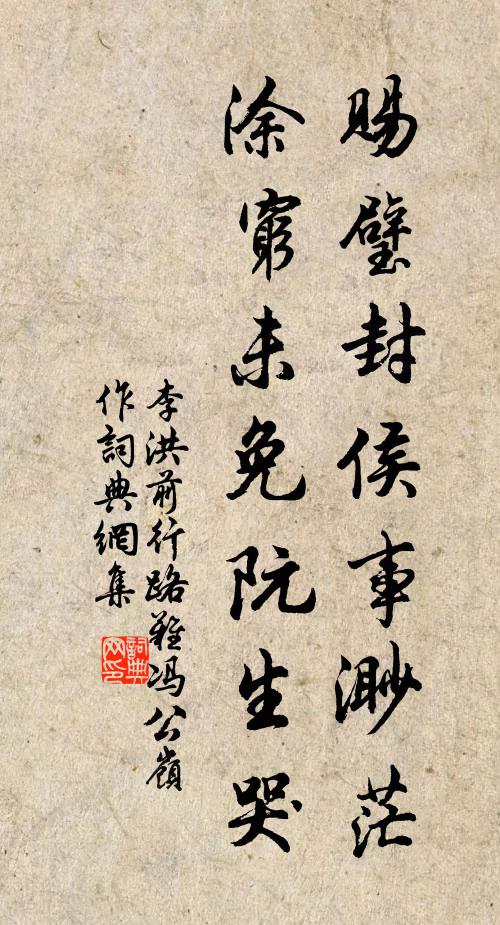 賜璧封侯事渺茫
涂窮未免阮生哭
李洪前行路難馮公嶺
作詞典網集
詞典網印